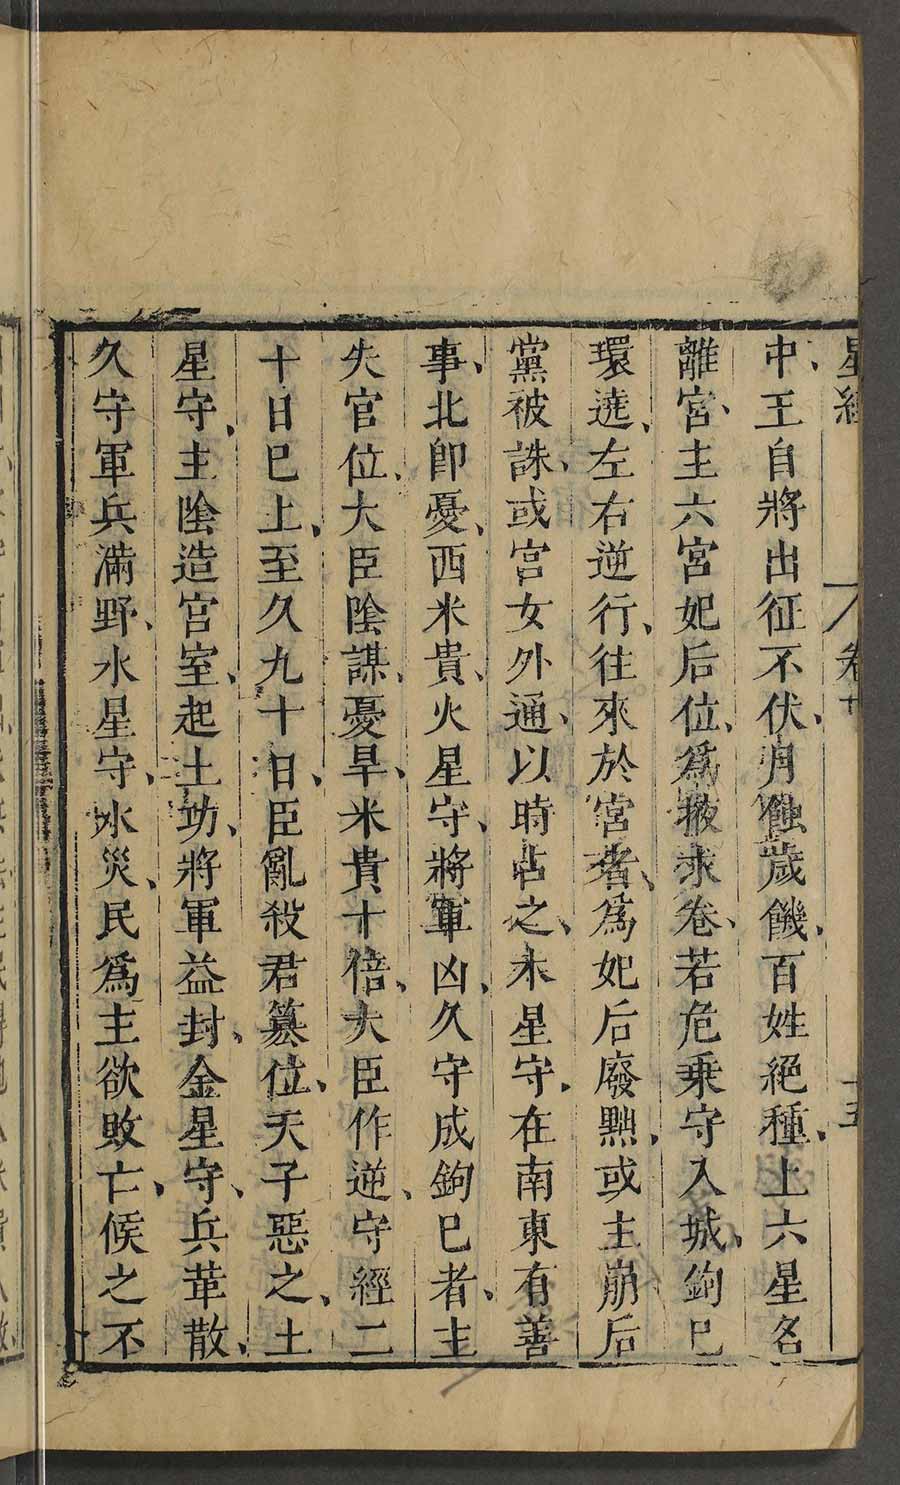 星經 卷下 十五
中王自將出征不伏月蝕歲饑百姓絕種上六星名
離宮主六宮妃后位爲掖永巷若危乗守入城鉤巳
環遶左右逆行往來於宮者爲妃后廢黜或主崩后
黨被誅或宮女外通以時占之木星守在南東有善
事北卽憂西米貴火星守將軍凶久守成鉤巳者主
失官位大臣陰謀憂旱米貴十倍大臣作逆守經二
十日巳上至久九十日臣亂殺君篡位天子惡之土
星守主陰造宮室起土功將軍益封金星守兵革散
久守軍兵滿野水星守水災民爲主欲敗亡候之不